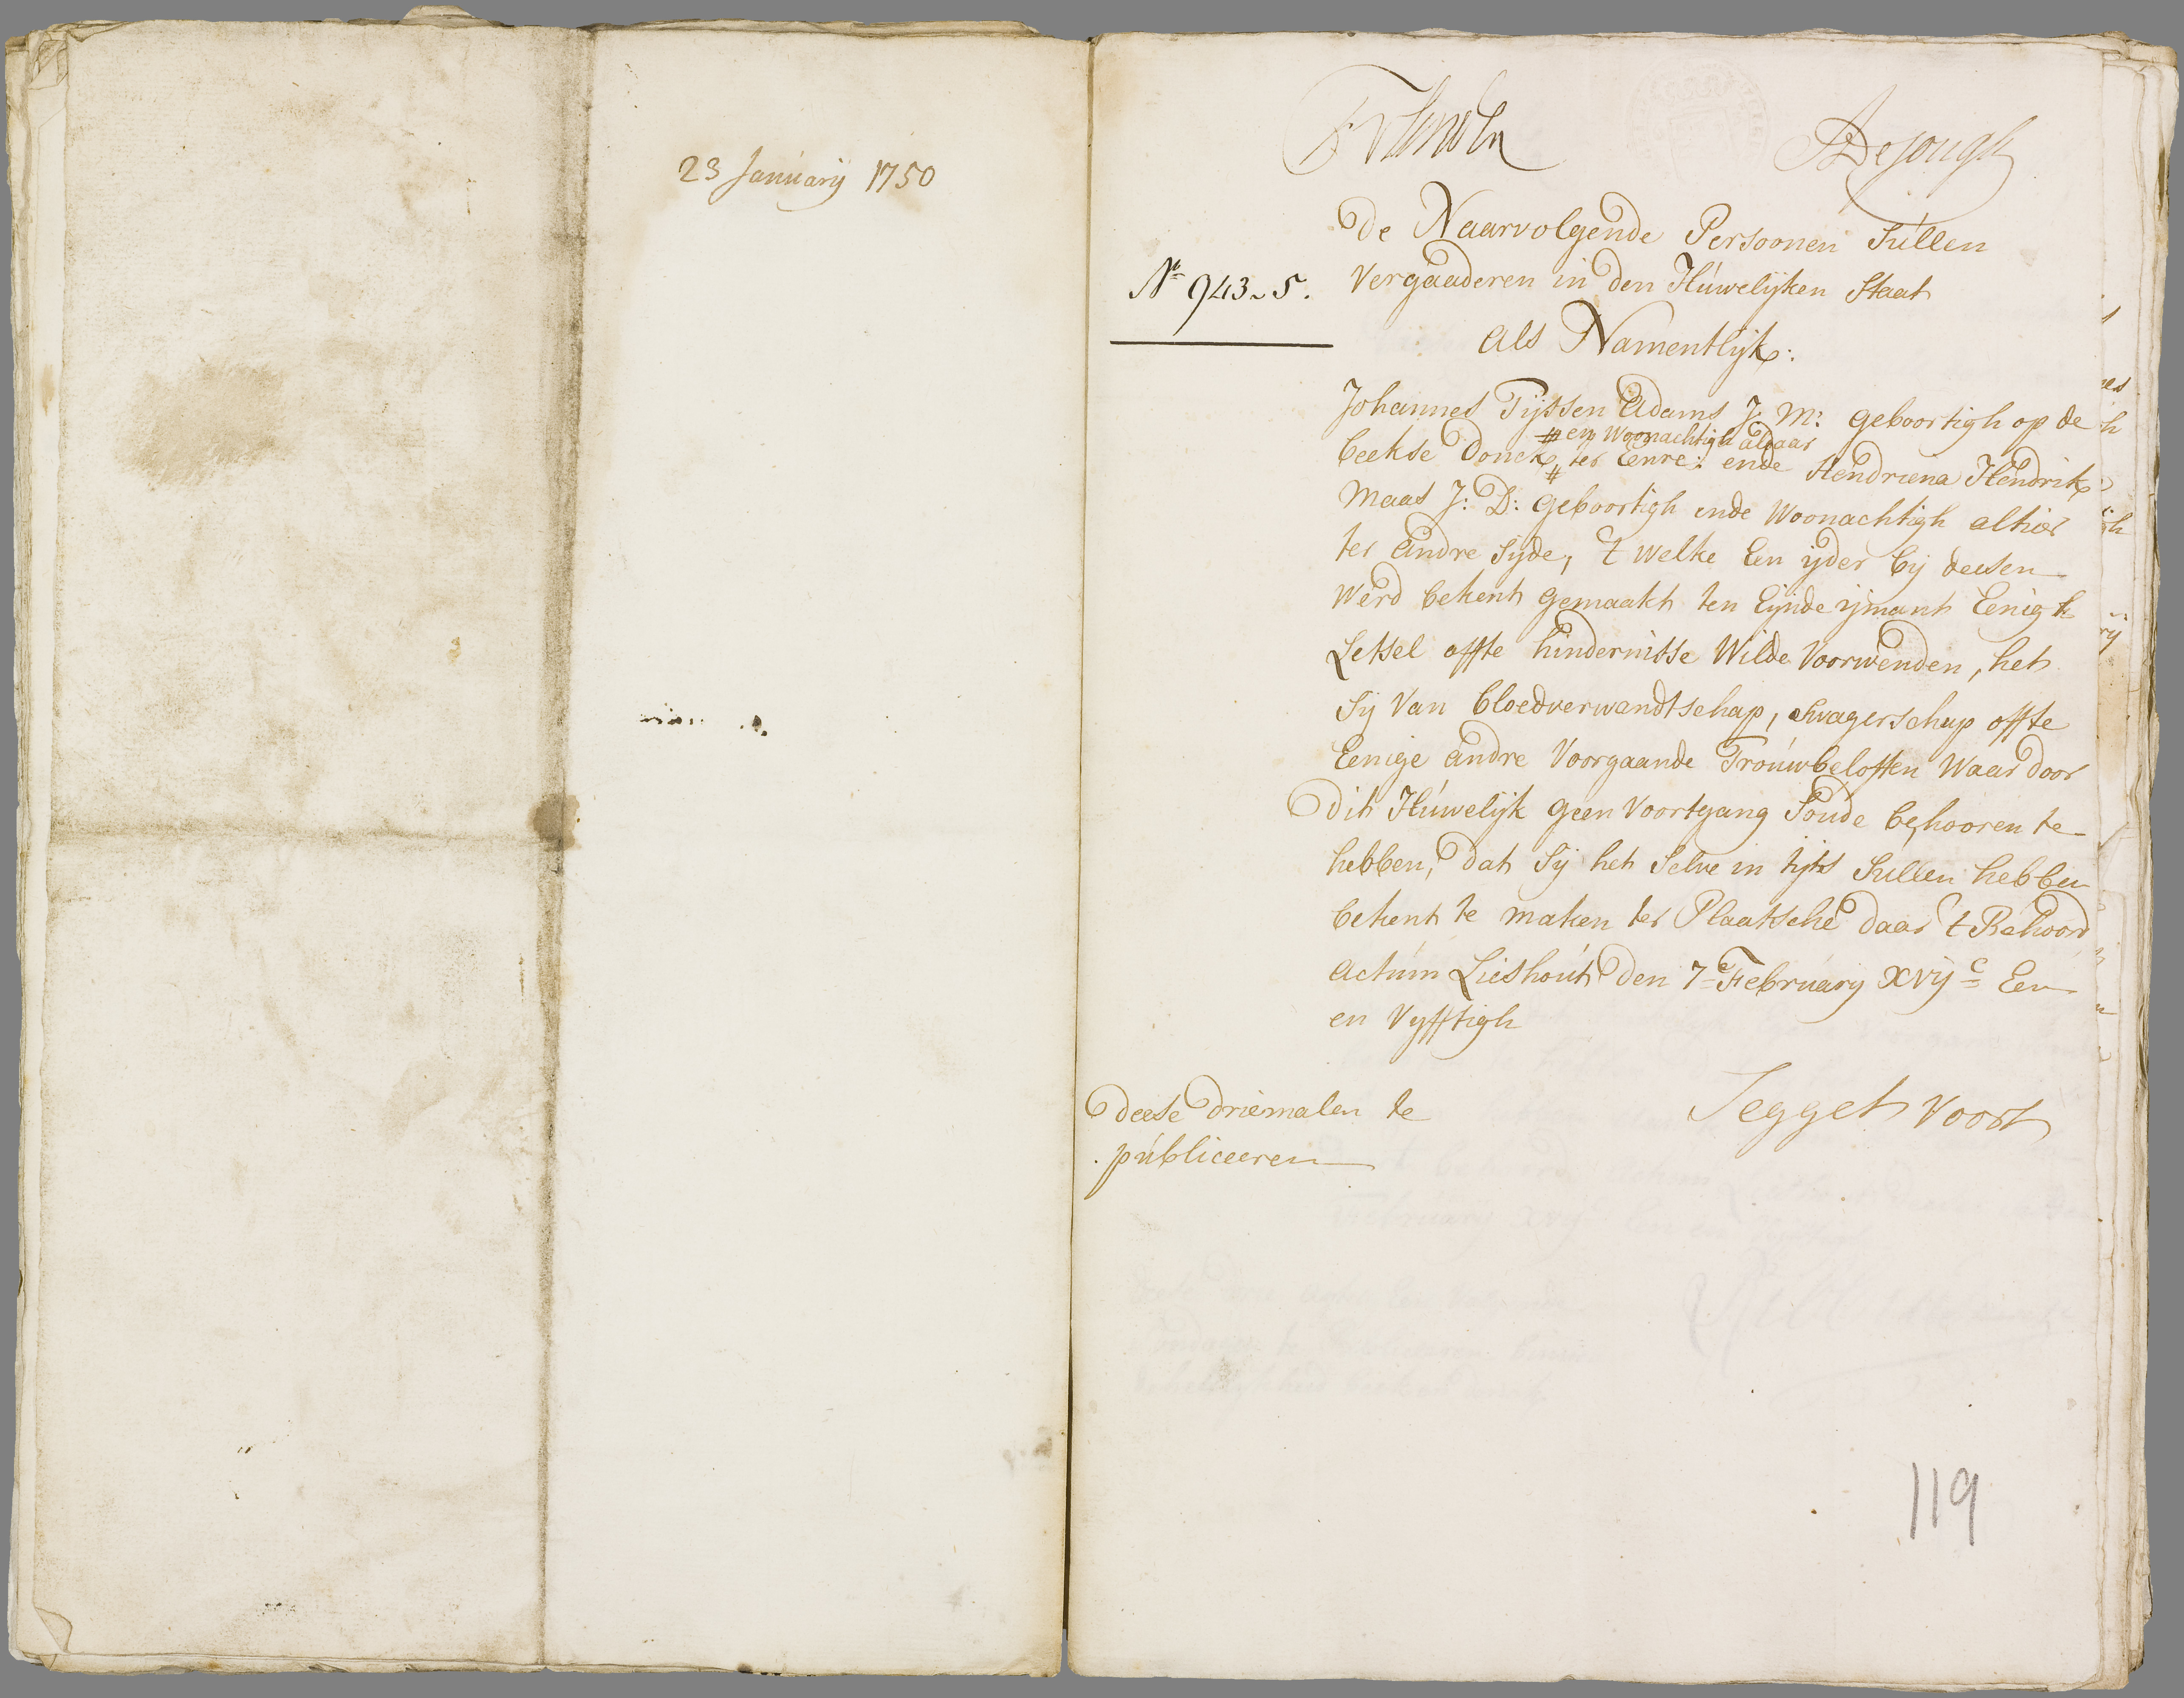 23 Januarij 1750
ADejongh
No 943~5.
De Naarvolgende Persoonen Sullen
Vergaaderen in den Huwelijken Staat
als Namentlijk:
Johannes Tijssen Adams J: M: geboortigh op de
# en Woonachtigh aldaar
beekse Donck # ter Eenre: ende Hendriena Hendrik
Maas J: D: geboortigh ende Woonachtigh alhier
ter andre Syde, 't welke Een ijder bij deesen
Werd bekent gemaakt ten Eijnde ijmant Eenigh
Letsel offte hindernisse Wilde Voorwenden, het
Sij Van bloedverwandtschap, Swagerschap offte
Eenige andre Voorgaande Trouwbeloften Waar door
Dit Huwelijk geen Voortgang Soude behooren te
hebben, dat Sij het Selve in tijts Sullen hebben
bekent te maken ter Plaatsche daar 't Behoord
Actum Lieshout den 7e February XVIJc Een
en Vijfftigh
Segget Voort
Deese Driemalen te
publiceeren
119